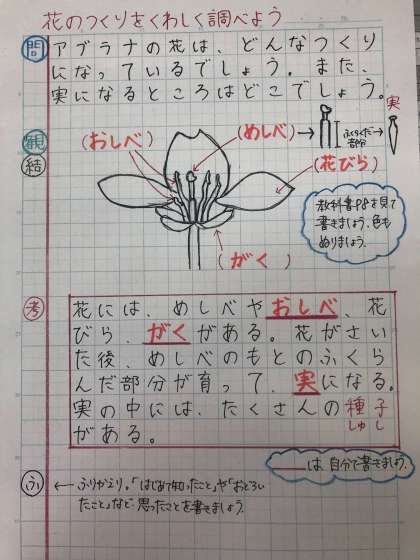 花のつくりをくわしく調べよう
問 アブラナの花は、どんなつくり
になっているでしょう。また、
実になるところはどこでしょう。
観
結
(おしべ)
(めしべ)
ふくらんだ
部分
実
(花びら)
(がく)
教科書P8を見て
書きましょう。色も
ぬりましょう。
考 花には、めしべやおしべ、花
びら、がくがある。花がさい
た後、めしべのもとのふくら
んだ部分が育って、実になる。
実の中には、たくさんの種子
しゅし
がある。
＿＿は、自分で書きましょう。
ふ ← ふりかえり。「はじめて知ったこと」や「おどろい
たこと」など、思ったことを書きましょう。